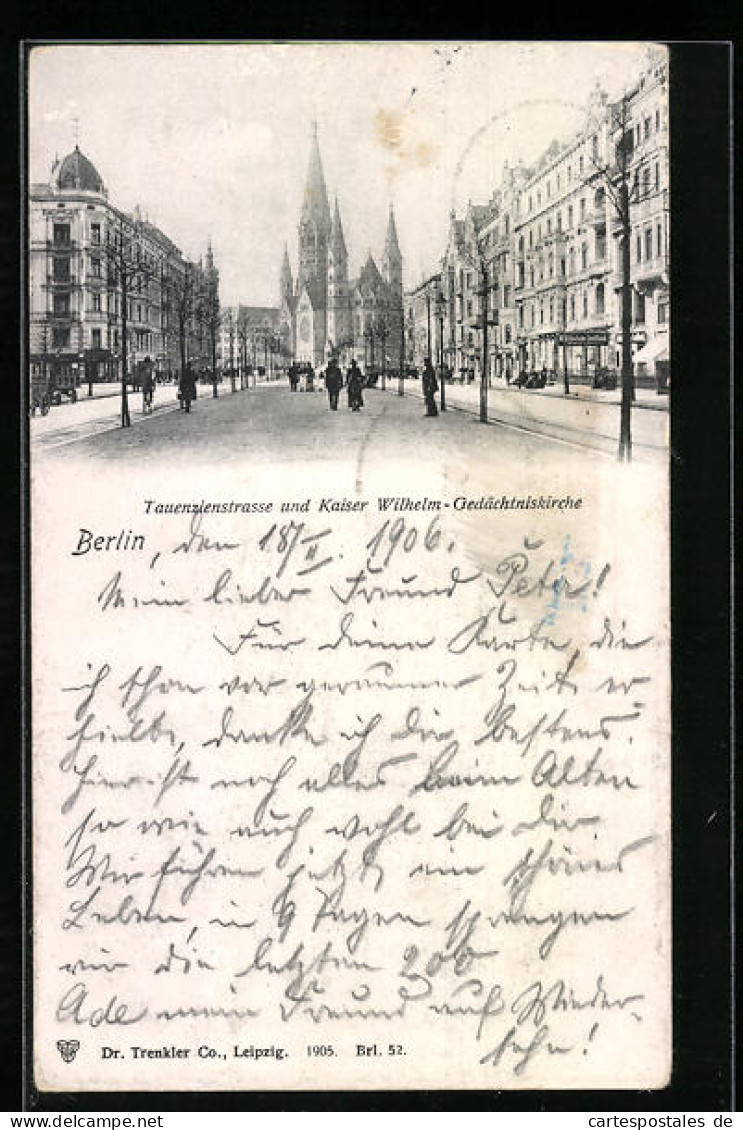 Tauenzienstrasse und Kaiser Wilhelm-Gedächtniskirche
Berlin, den 18/II. 1906.
Mein lieber Freund Peter!
Für deine Karte, die
ich schon vor geraumer Zeit er-
hielt, danke ich dir bestens.
Hier ist noch alles beim Alten
so wie auch wohl bei dir
Wir führen jetzt ein schönes
Leben, in 9 Tagen sprengen
wir die letzten 200
Ade mein Freund auf Wieder-
sehn!
Dr. Trenkler Co., Leipzig. 1905. Brl. 52.
cartespostales de